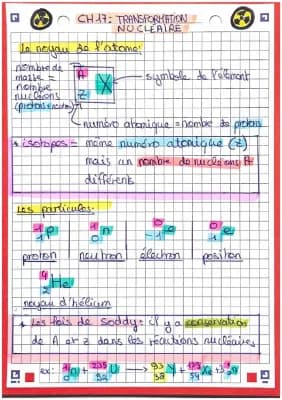 CH 17: TRANSFORMATION
NUCLÉAIRE
Le noyau de l'atome:
nombre de
masse =
nombre
nucléons
A
Z
X
symbole de l'élément
numéro atomique = nombre de protons
* isotopes = même numéro atomique (Z)
mais un nombre de nucléons A
différents
Les particules:
1 1 p
1 0 n
0 -1 e
0 1 e
proton
neutron
électron
positon
4 2 He
noyau d'hélium
* Les lois de Soddy: il y a conservation
de A et Z dans les réactions nucléaires
ex: 1 0 n + 235 92 U → 93 Y +